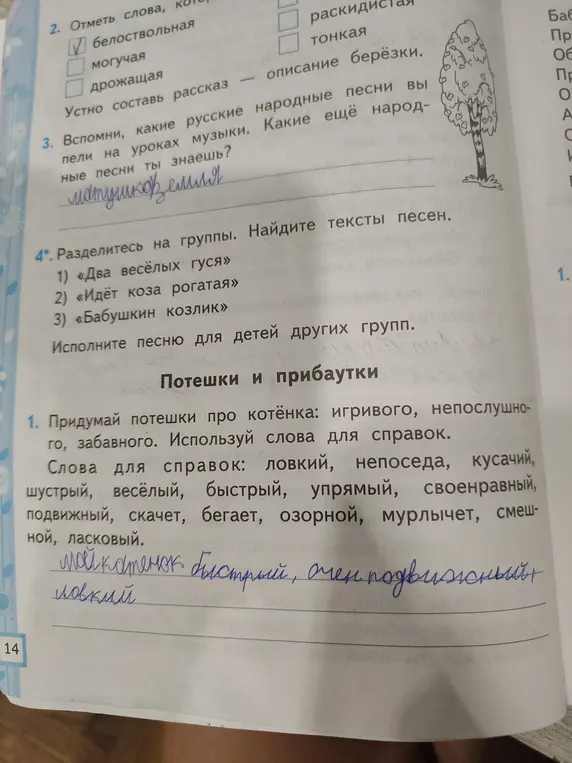 2. Отметь слова, кото
белоствольная
раскидистая
могучая
тонкая
дрожащая
Устно составь рассказ — описание берёзки.
3. Вспомни, какие русские народные песни вы
пели на уроках музыки. Какие ещё народ-
ные песни ты знаешь?
матушка земля
4*. Разделитесь на группы. Найдите тексты песен.
1) «Два весёлых гуся»
2) «Идёт коза рогатая»
3) «Бабушкин козлик»
Исполните песню для детей других групп.
Потешки и прибаутки
1. Придумай потешки про котёнка: игривого, непослушно-
го, забавного. Используй слова для справок.
Слова для справок: ловкий, непоседа, кусачий,
шустрый, весёлый, быстрый, упрямый, своенравный,
подвижный, скачет, бегает, озорной, мурлычет, смеш-
ной, ласковый.
мой котенок быстрый, очен подвижный,
ловкий
14
Баб
Пр
Об
Пр
О
А
С
1.